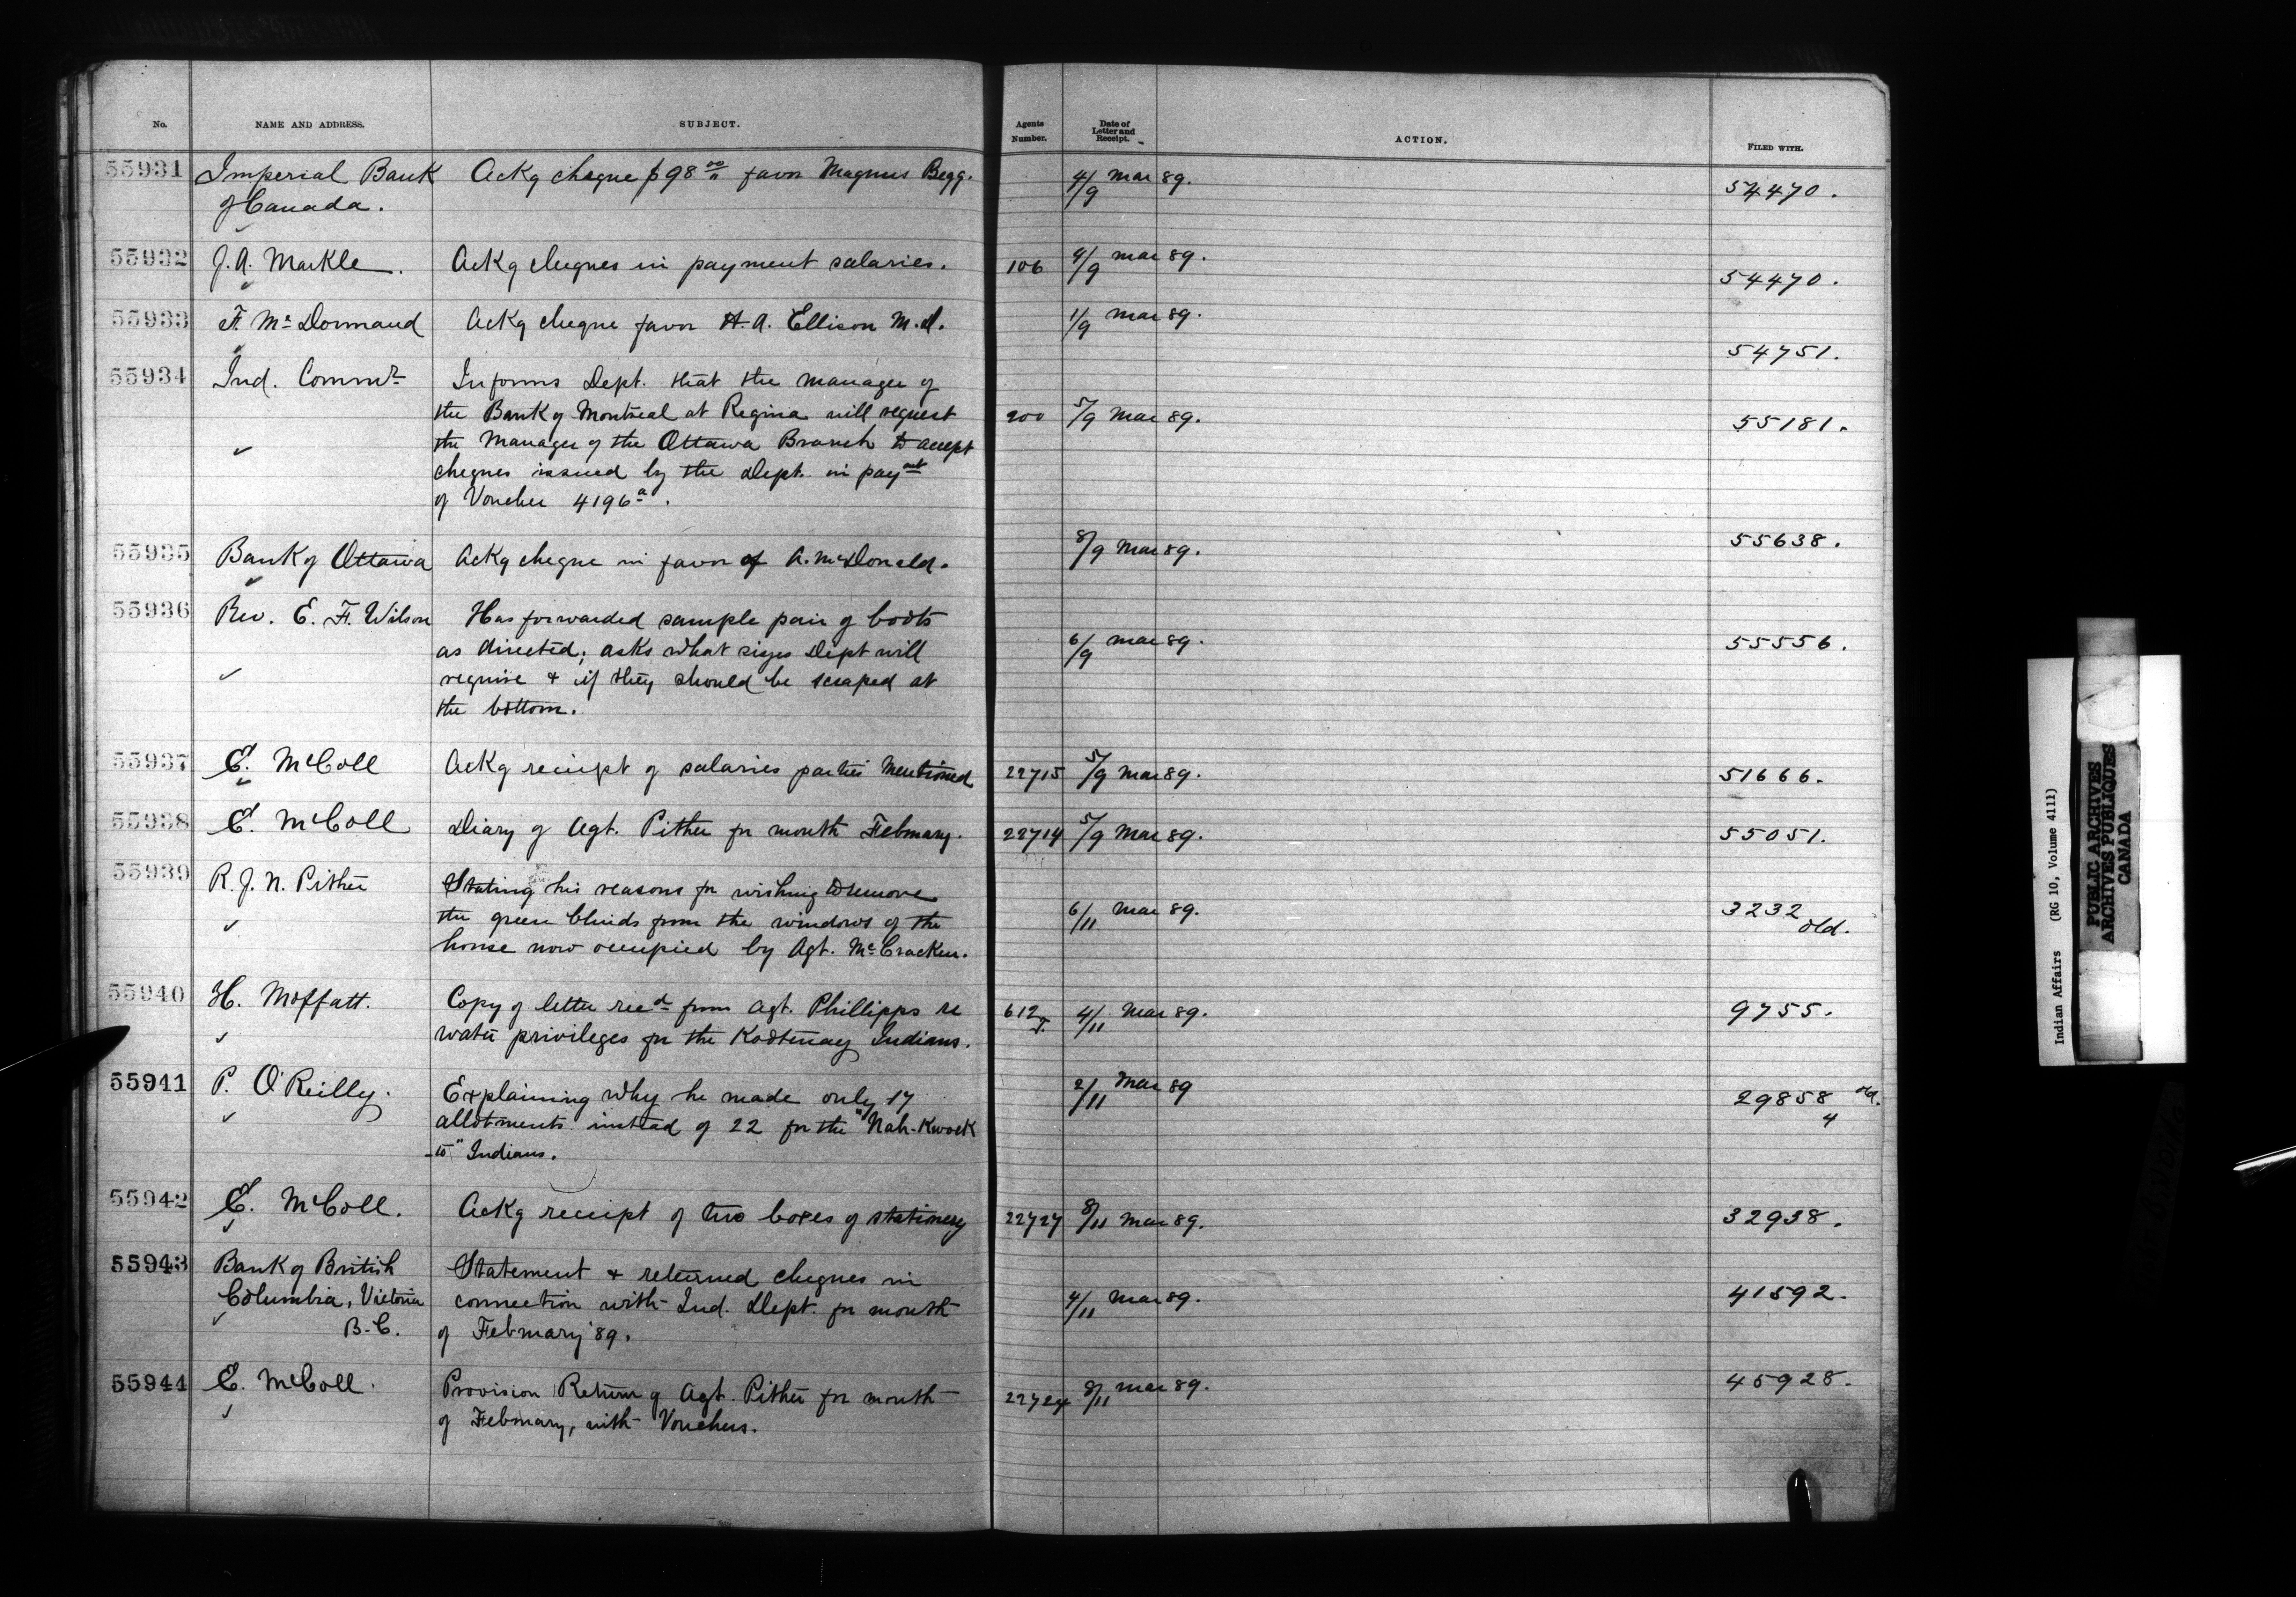 No. NAME AND ADDRESS. SUBJECT. Agents Number. Date of Letter and Receipt. ACTION. FILED WITH.
55931 Imperial Bank Ackg cheque $98 00/" favor Magnus Begg. 4/9 Mar 89. 54470.
of Canada.
55932 J. A. Markle. Ackg cheques in payment salaries. 106 4/9 Mar 89. 54470.
55933 F. McDormand Ackg cheque favor H. A. Ellison M.D. 1/9 Mar 89. 54751.
55934 Ind. Commr Informs Dept. that the manager of
the Bank of Montreal at Regina will request 200 5/9 Mar 89. 55181.
the Manager of the Ottawa Branch to accept
cheques issued by the Dept. in paymt
of Voucher 4196a.
55935 Bank of Ottawa Ackg cheque in favor of A. McDonald. 8/9 Mar 89. 55638.
55936 Rev. E. F. Wilson Has forwarded sample pair of boots
as directed; asks what sizes Dept will 6/9 Mar 89. 55556.
require & if they should be scraped at
the bottom.
55937 E. McColl Ackg receipt of salaries parties mentioned 22715 5/9 Mar 89. 51666.
55938 E. McColl Diary of Agt. Pither for month February. 22714 5/9 Mar 89. 55051.
55939 R. J. N. Pither Stating his reasons for wishing to remove
the green blinds from the windows of the 6/11 Mar 89. 3232 old.
house now occupied by Agt. McCracken.
55940 H. Moffatt. Copy of letter recd from Agt. Phillipps re 612 J. 4/11 Mar 89. 9755.
water privileges for the Kootenay Indians.
55941 P. O'Reilly. Explaining why he made only 17 2/11 Mar 89 29858 old.
allotments instead of 22 for the "Nah-Kwock 4
-to" Indians.
55942 E. McColl. Ackg receipt of two boxes of stationery 22727 8/11 Mar 89. 32938.
55943 Bank of British Statement & returned cheques in
Columbia, Victoria connection with Ind. Dept. for month 4/11 Mar 89. 41592.
B.C. of February '89.
55944 E. McColl. Provision Return of Agt. Pither for month 22724 8/11 Mar 89. 45928.
of February, with Vouchers.
Indian Affairs (RG 10, Volume 4111)
PUBLIC ARCHIVES
ARCHIVES PUBLIQUES
CANADA